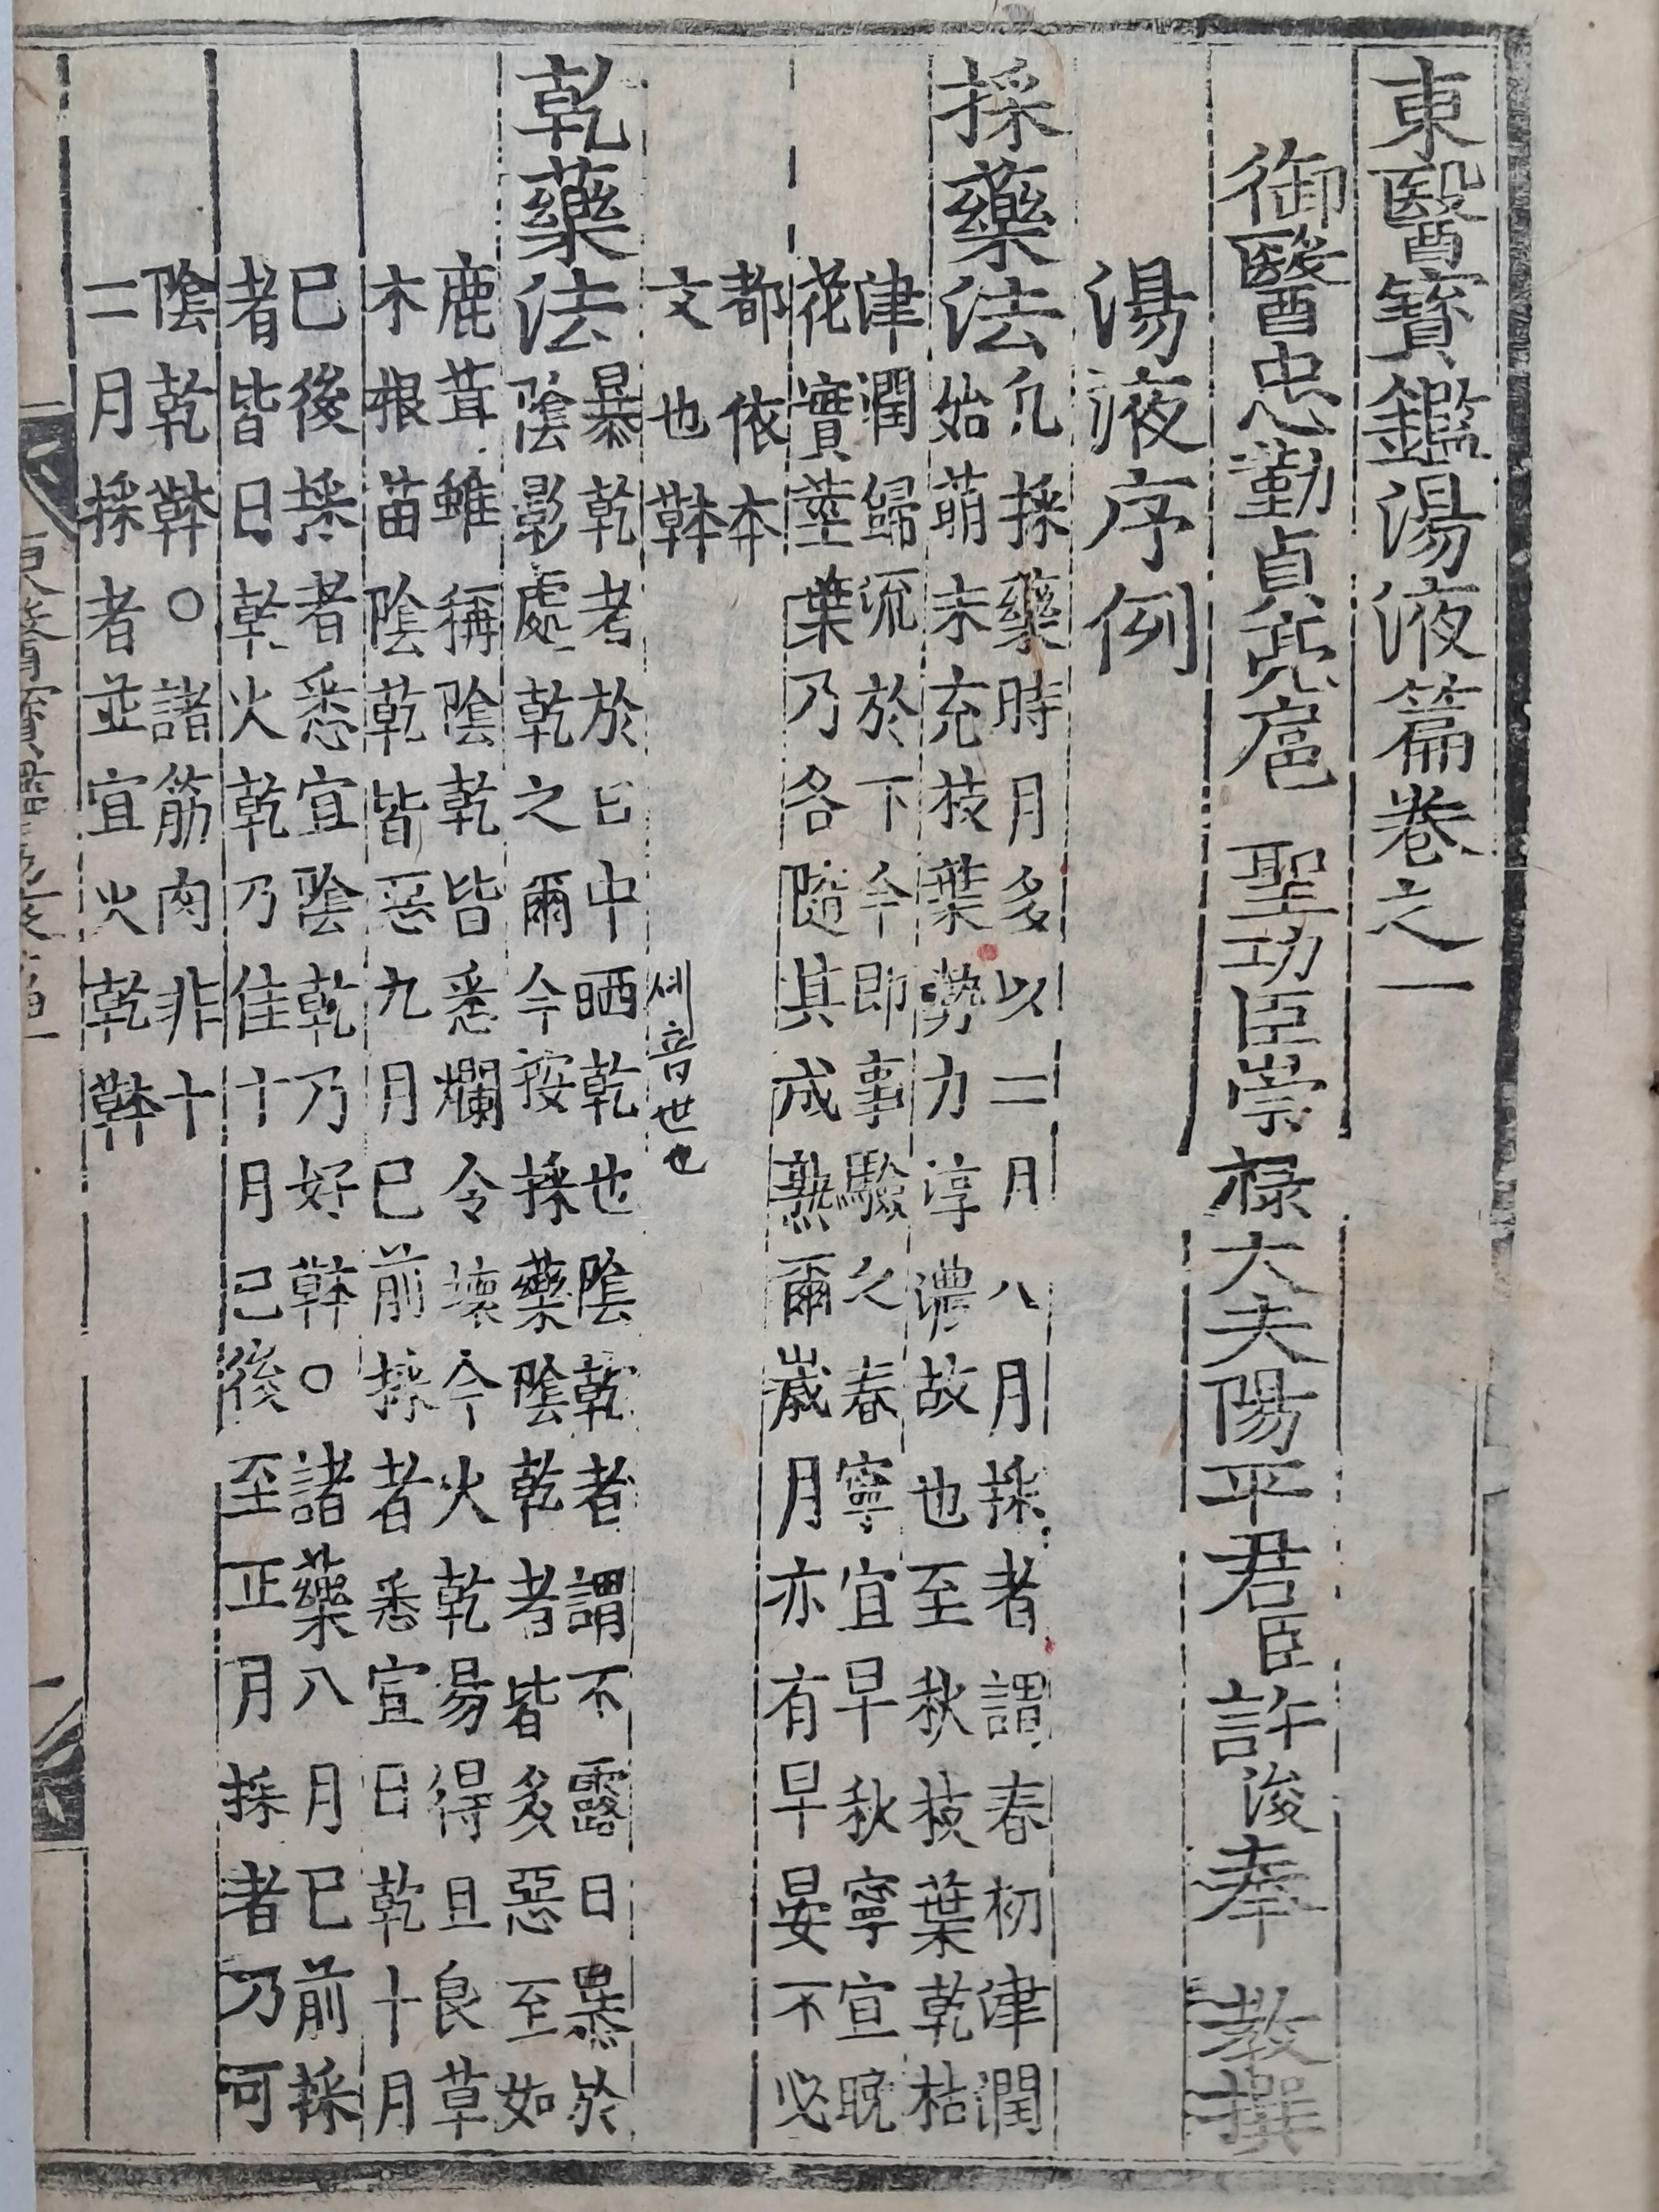 東醫寶鑑湯液篇卷之一
御醫忠勤貞亮扈 聖功臣崇祿大夫陽平君臣許浚奉 教撰
湯液序例
採藥法
凡採藥時月多以二月八月採者謂春初津潤
始萌未充枝葉勢力淳濃故也至秋枝葉乾枯
津潤歸流於下今即事驗之春寧宜早秋寧宜晩
花實莖葉乃各隨其成熟爾歲月亦有早晏不必
都依本
文也㪽
세音世也
乾藥法
暴乾者於日中晒乾也陰乾者謂不露日暴於
陰影處乾之爾今按採藥陰乾者皆多惡至如
鹿茸雖稱陰乾皆悉爛令壞今火乾易得且良草
木根苗陰乾皆惡九月已前採者悉宜日乾十月
已後採者悉宜陰乾乃好㪽○諸藥八月已前採
者皆日乾火乾乃佳十月已後至正月採者乃可
陰乾㪽○諸筋肉非十
二月採者並宜火乾㪽